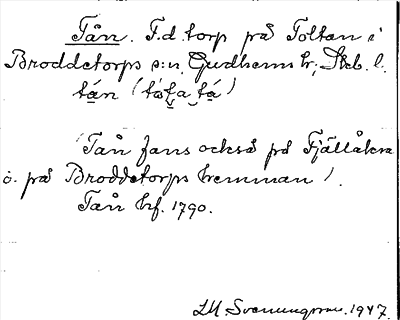 Tån. F.d. torp på Toltan i
Broddetorps s:n, Gudhems hr; Skb. l.
tán (
(Tån fans också på Fjällåkra
o. på Broddetorps hemman).
Tån hf. 1790.
LM. Svenungsson. 1947.